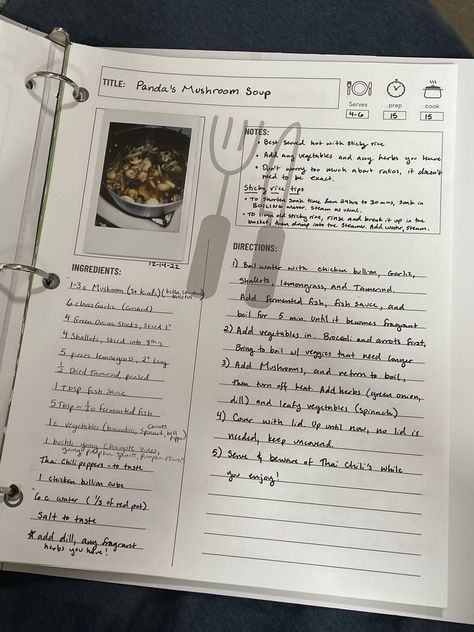 TITLE: Panda's Mushroom Soup
Serves prep cook
4-6 15 15
12-14-22
NOTES:
• Best served hot with sticky rice
• Add any vegetables and any herbs you have
• Don't worry too much about ratios, it doesn't
need to be exact.
Sticky rice tips
• To shorten soak time from 24hrs to 30 min, soak in
BOILING water. Steam as usual.
• To liven old sticky rice, rinse and break it up in the
basket, then dump into the steamer. Add water, steam.
INGREDIENTS:
1-3 c Mushroom
6 cloves Garlic
4 Green Onion stocks, sliced 1"
4 Shallots, sliced into
5 pieces lemongrass, 2" long
1/2 Dried Tamarind, peeled
1 Tbsp fish sauce
5 Tbsp Fermented fish
carrots
1 c vegetables (broccolini, spinach, bell
pepper)
1 bushle young chayote vines,
Thai Chili peppers - to taste
1 chicken bullion cube
6 c water (1/3 of red pot)
Salt to taste
* add dill, any fragrant
herbs you have!
DIRECTIONS:
1) Boil water with chicken bullion, Garlic,
Shallots, lemongrass, and Tamarind.
Add fermented fish, fish sauce, and
boil for 5 min until it becomes fragrant
2) Add vegetables in. Brocoli and carrots first,
Bring to boil w/ veggies that need longer
3) Add Mushrooms, and return to boil,
then turn off heat. Add herbs (green onion,
dill) and leafy vegetables (spinach)
4) Cover with lid. Up until now, no lid is
needed, keep uncovered.
5) Serve & beware of Thai Chili's while
you enjoy!